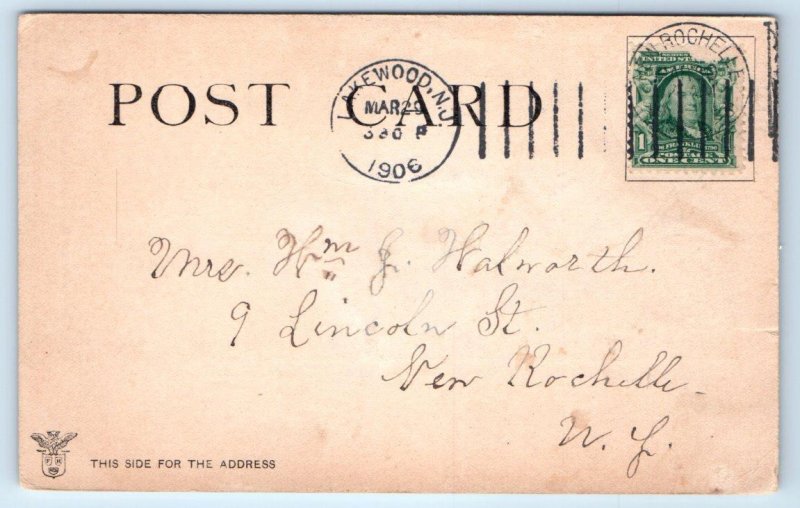 POST CARD
LAKEWOOD, N.J.
MAR 29
3 30 P
1906
ROCHELLE
UNITED STATES
1
ONE CENT
Mrs. Wm J. Walworth.
9 Lincoln St.
New Rochelle
N. Y.
THIS SIDE FOR THE ADDRESS